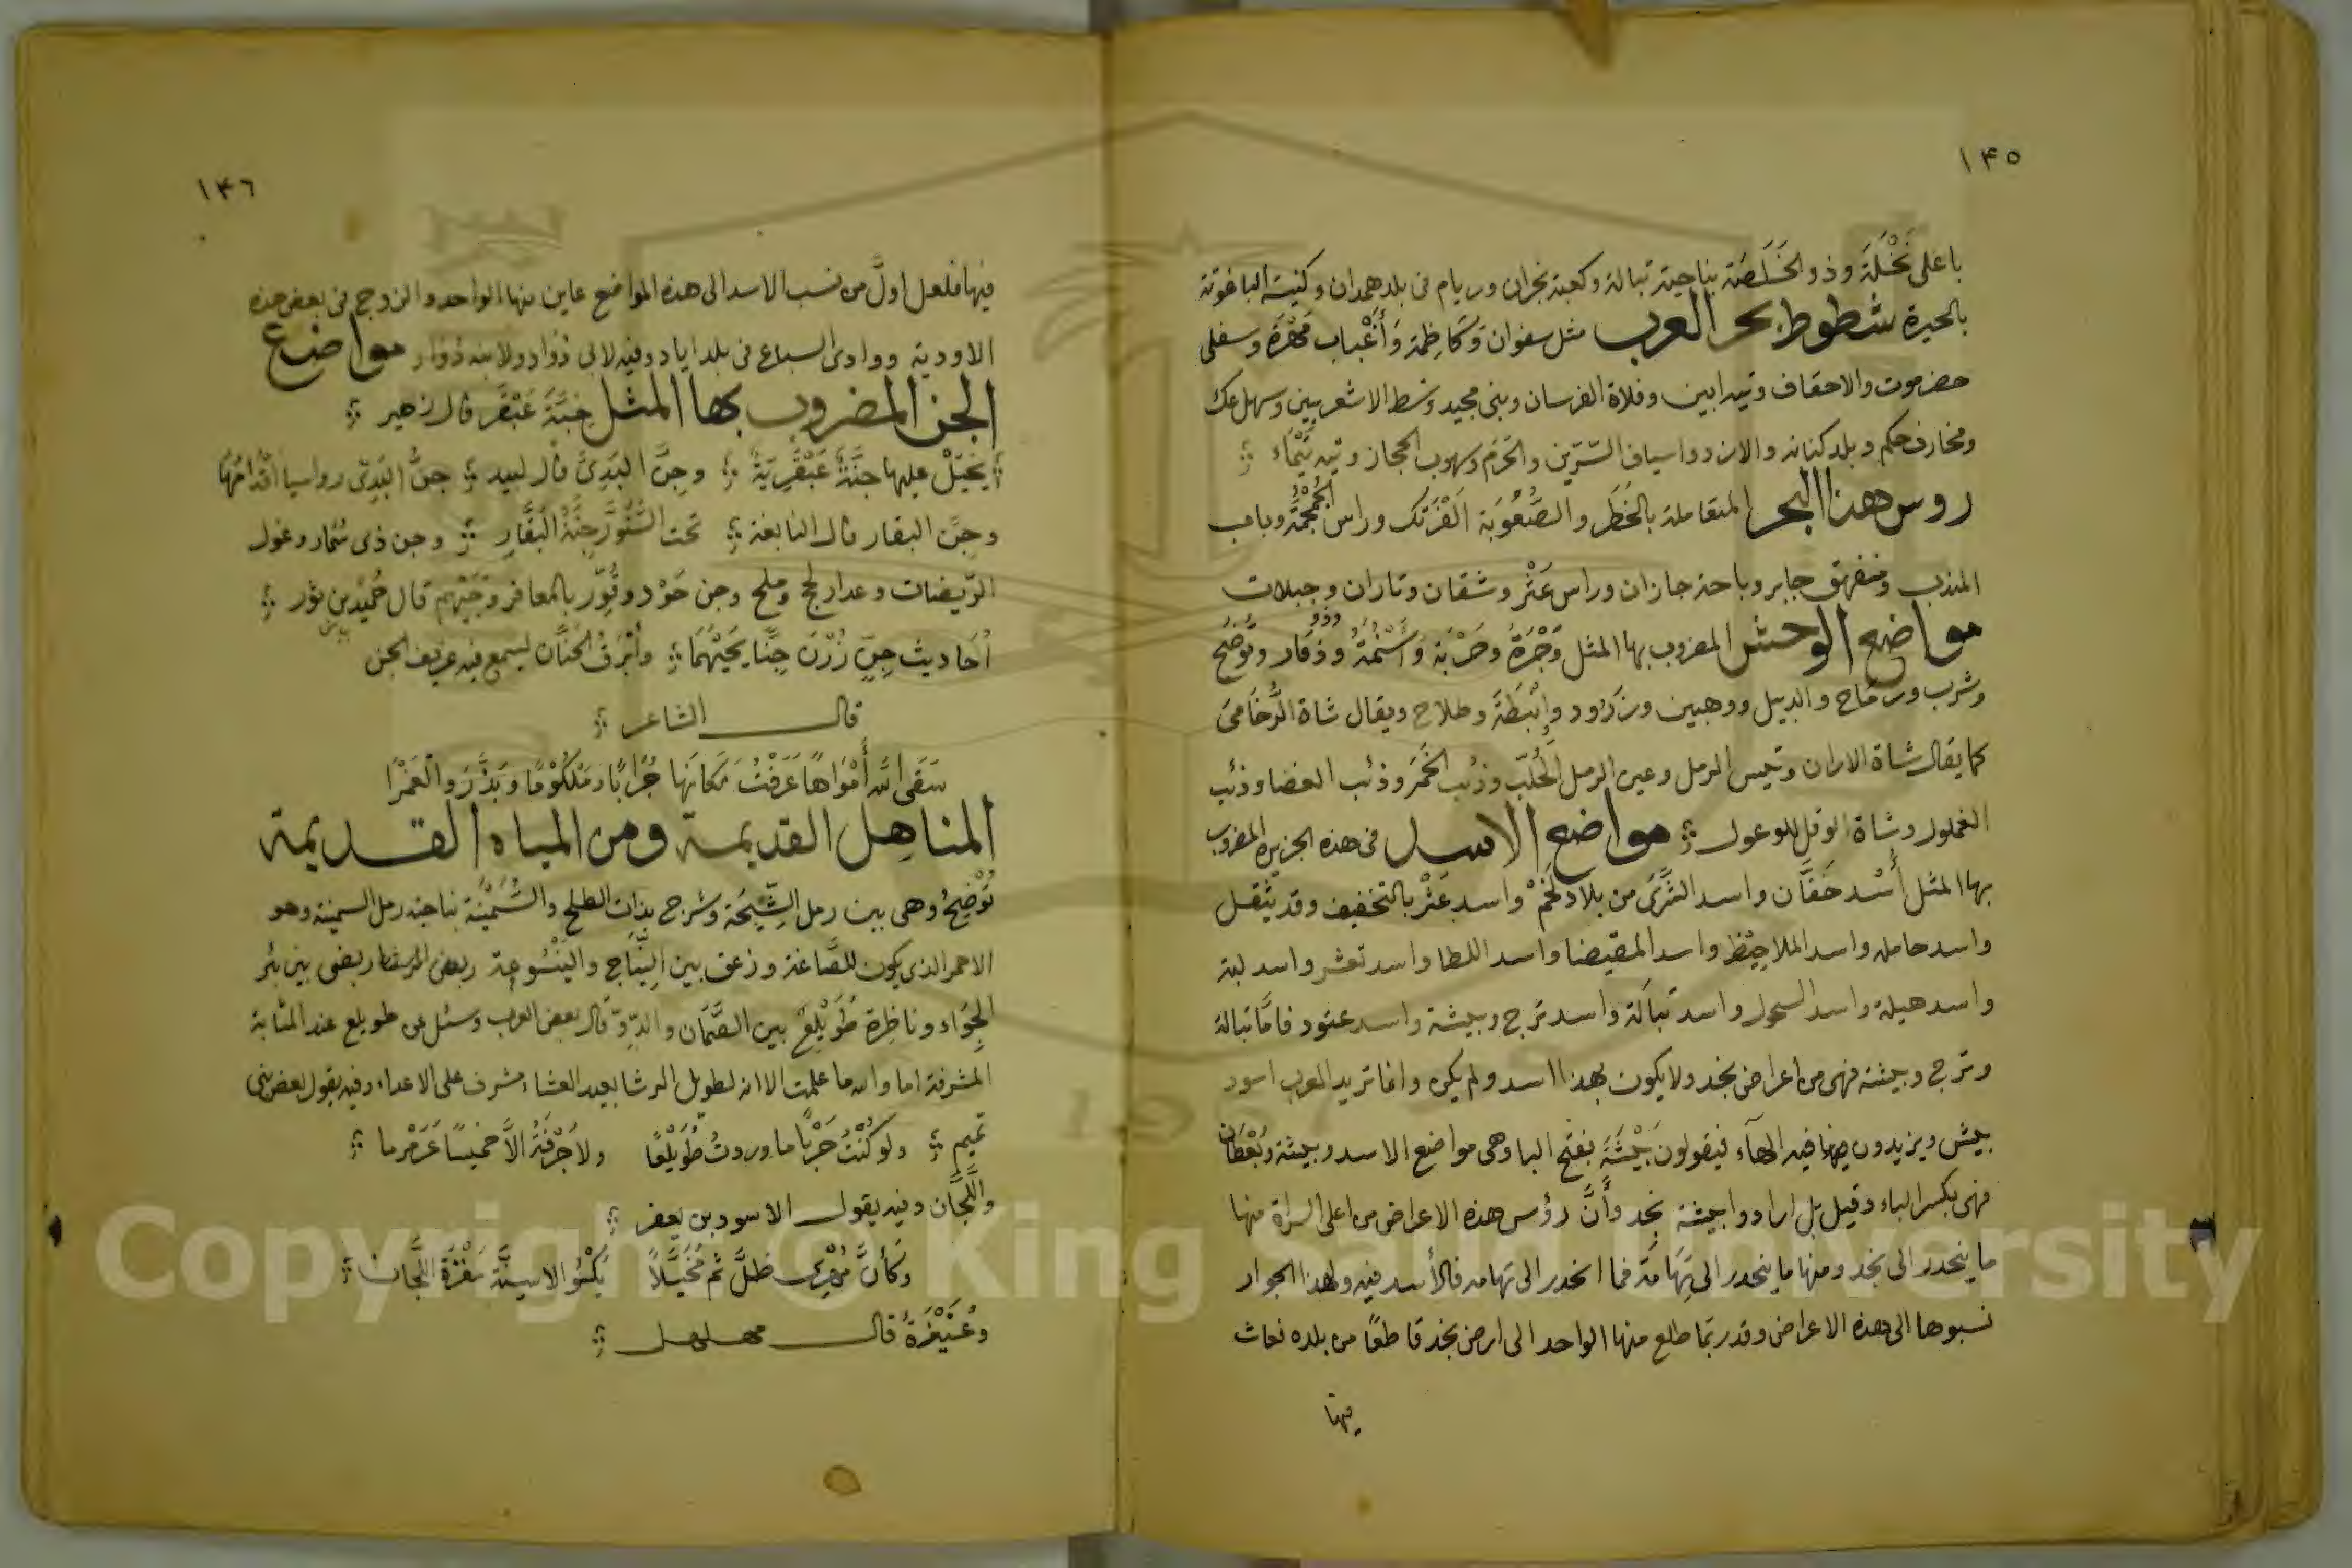 ١٤٥
باعلى نَخْلَة وذو الخَلَصَة بناحية تبالة وكعبة نجران وريام فى بلد همدان وكنيسة الباغوتة
بالحيرة شطوط بحر العرب مثل سفوان وكاظمة وأغباب مَهْرَة وسفلى
حضرموت والاحقاف وتيه ابين وفلاة الفرسان وبنى مجيد وشط الاشعريين وسهل عك
ومخارف حكم وبلد كنانة والازد واسياف السّرّين والحَرَم وسهوب الحجاز وتيه تَيْماء
روس هذا البحر المتعاملة بالخَطَر والصُّعُوبَة الفَرْتَك وراس الجُمْجُمَة وباب
المندب ومنفهق جابر وباحة جازان وراس عَثْر وشقان وتاران وجبلات
مواضع الوحش المضروب بها المثل وَجْرَةُ وحَرْبَة وأَسْنُمَةُ وذو قار وتُوضِح
وشرب ورماح والدبيل ووهبين وزرود وابْبَطَة وطلاح ويقال شاة الرُّخَامىَ
كما يقال شاة الاران وتيس الرمل وعين الرمل الحُلَّب وذئب الخَمَر وذئب الغضا وذئب
الغملول وشاة الوقل للوعول مواضع الاسد فى هذه الجزيرة المضروب
بها المثل أُسْد خَفَّان واسد الشَّرَى من بلاد لَخْمْ واسد عَثْر بالتخفيف وقد يثقل
واسد حامله واسد الملاحِيْظ واسد المقيضا واسد اللطا واسد تعشر واسد لية
واسد هيلة واسد السحول واسد تبالة واسد ترج وبيشة واسد عتود فامَّا تبالة
وترج وبيشة فهى من اعراض نجد ولا يكون بهذا اسد ولم يكن وانما تريد العرب اسود
بيش ويزيدون فيه الهآء فيقولون بَيْشَةَ بفتح البا وهى مواضع الاسد وبيشة وبُعْطَان
فهى بكسر الباء وقيل بل ارادوا بيشة نجد وأنَّ رؤس هذه الاعراض من اعلى السراة منها
ما ينحدر الى نجد ومنها ما ينحدر الى تِهَامَة فما انحدر الى تهامه فالأسد فيه ولهذا الجوار
نسبوها الى هذه الاعراض وقد ربّما طلع منها الواحد الى ارض نجد قاطعًا من بلده فعاث
فيها
١٤٦
فيها فلعل اولَّ من نسب الاسد الى هذه المواضع عاين منها الواحد والزوج فى بعض هذه
الاودية ووادى السباع فى بلد اياد وفيه لابى ذؤاد ولابنه ذؤاد مواضع
الجن المضروب بها المثل جِنَّة عَبْقَر قال زهير
يخيَل عليها جنَّةٌ عَبْقَرِيَّةٌ وجِنَّ البَدِىَّ قال لبيد جنُّ البَدِىّ رواسيا اقْدامُهَا
وجِنَّ البقار قال النابغة تحت السَّنَوَّرِ جِنَّةُ البَقَّارِ وجن ذى سُمَار وغول
الرّبيضات وعدار لحج وملح وجن حَوْد وقُوَرّ بالمعافر وجَيْهم قال حُمَيْد بن ثور
أَحَاديث جِنّ زُرْنَ جِنًّا بَجَيْهَمَا وأَبْرَقُ الحَنَّان ليسمع فيه عزيف الجن
قال الشاعر
سَقَى الله أَمْوَاهًا عَرَفْتُ مَكانَهَا جُرَابًا ومَلْكُومًا وبَذَّرَ والْغَمْرَا
المناهل القديمة ومن المياه القديمة
تُوْضِحُ وهى بين رمل الشّيحَة وشرج بذات الطلح والسُّمَيْنَة بناحية رمل السمينة وهو
الاحمر الذى يكون للصَّاغة وزعق بين النِّبَاج واليَنْسُوعة ربعض
الجِوَاء وناظِرة طُوَيْلِعُ بين الصَّمَّان والدّوّ قال بعض العرب وسئل عن طويلع عند المثابة
المشرفة اما والله ما علمت الا انه لطويل الرشا بعيد العشاء مشرف على الاعداء وفيه يقول بعض بنى
تميم ولو كُنْتُ حَرْبًا ما وردتُ طُوَيْلعًا ولا جُرْفَهُ الاَّ خميسًا عَرَمْرما
واللَّجَّان وفيه يقول الاسود بن يعفر
وكأنَّ مُهْرِىَ ظلَّ ثَم مُخَيَّلاً يَكْسُو الاسِنَّةَ مَغْرَةَ اللَّجَّان
وعُنَيْزَةُ قال مهلهل